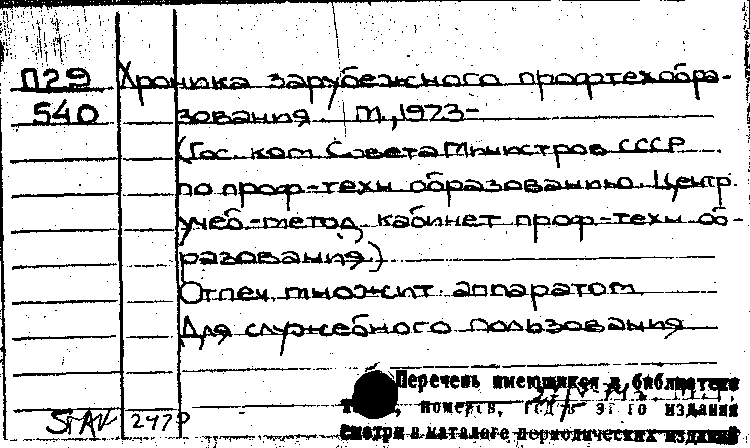 П29 Хроника зарубежного профтехобра-
540 зования. М., 1973-
(Гос. ком. Совета Министров СССР
по проф.-техн образованию. Центр.
учеб.-метод. кабинет проф.-техн об-
разования.)
Отпеч. множит. аппаратом
Для служебного пользования
Перечень имеющихся в библиотеке
номеров, издания
смотри в каталоге периодических изданий
2479